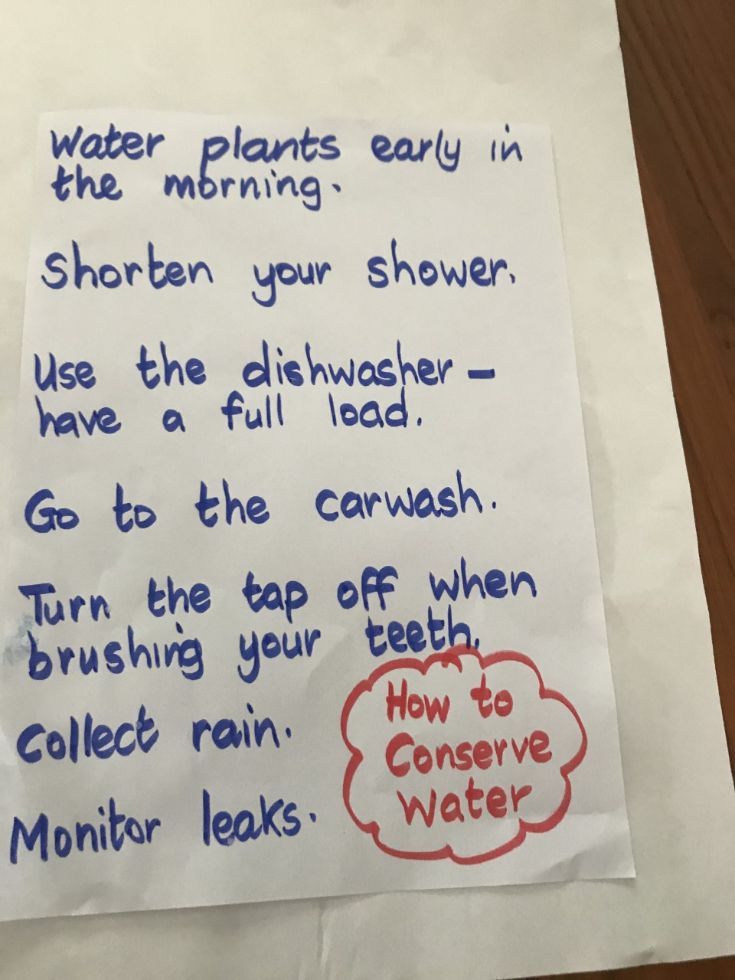 Water plants early in
the morning.
Shorten your shower.
Use the dishwasher -
have a full load.
Go to the carwash.
Turn the tap off when
brushing your teeth.
Collect rain.
Monitor leaks.
How to
Conserve
Water